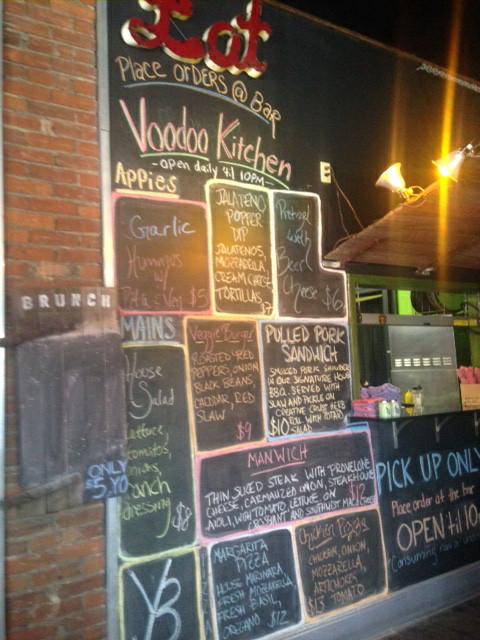 Eat
PLACE ORDERS @ BAR
Voodoo Kitchen
- open daily 'til 10PM -
APPIES
Garlic
Hummus
w/
Pita & Veg $5
JALAPENO
POPPER
DIP
JALAPENOS,
MOZZARELLA,
CREAM CHEESE,
TORTILLAS
$7
Pretzel
with
Beer
Cheese $6
BRUNCH
ONLY
MAINS
House
Salad
Lettuce,
tomatos,
onions,
ranch
dressing
$8
Veggie Burger
ROASTED RED
PEPPERS, ONION
BLACK BEANS,
CHEDDAR, RED
SLAW
$9
PULLED PORK
SANDWICH
SMOKED PORK SHOULDER
IN OUR SIGNATURE HOUSE
BBQ. SERVED WITH
SLAW AND PICKLE ON
CREATIVE CRUST HERB
$10 ROLL WITH POTATO
SALAD
MANWICH
THIN SLICED STEAK WITH PROVELONE
CHEESE, CARMALIZED ONION, STEAKHOUSE
AIOLI, WITH TOMATO, LETTUCE ON
CROISSANT AND SOUTHWEST MAC & CHEESE
VB
MARGARITA
PIZZA
HOUSE MARINARA,
FRESH MOZZARELLA
FRESH BASIL,
OREGANO $12
Chicken Pizza
CHICKEN, ONION,
MOZZARELLA,
ARTICHOKES
$13 TOMATO
PICK UP ONLY
Place order at the bar
OPEN til 10